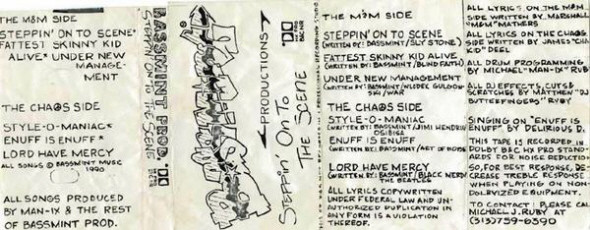 THE M&M SIDE
STEPPIN' ON TO SCENE*
FATTEST SKINNY KID
ALIVE* UNDER NEW
MANAGE-
MENT
THE CHAOS SIDE
STYLE-O-MANIAC*
ENUFF IS ENUFF*
LORD HAVE MERCY
ALL SONGS © BASSMINT MUSIC
1990
ALL SONGS PRODUCED
BY MAN-IX & THE REST
OF BASSMINT PROD.
BASSMINT PROD.
STEPPIN' ON TO THE SCENE
'90
PRODUCTIONS
'90
STEPPIN' ON TO
THE SCENE
THE M&M SIDE
STEPPIN' ON TO SCENE
(WRITTEN BY: BASSMINT/SLY STONE)
FATTEST SKINNY KID ALIVE
(WRITTEN BY: BASSMINT/BLIND FAITH)
UNDER NEW MANAGEMENT
(WRITTEN BY: BASSMINT/
WAR)
THE CHAOS SIDE
STYLE-O-MANIAC
(WRITTEN BY: BASSMINT/JIMI HENDRIX
ENUFF IS ENUFF
(WRITTEN BY: BASSMINT/ART OF NOISE
LORD HAVE MERCY
(WRITTEN BY: BASSMINT/
THE BEATLES
ALL LYRICS COPYWRITTEN
UNDER FEDERAL LAW AND UN-
AUTHORIZED DUPLICATION IN
ANY FORM IS A VIOLATION
THEREOF.
ALL LYRICS ON THE M&M
SIDE WRITTEN BY MARSHALL
"M&M" MATHERS
ALL LYRICS ON THE CHAOS
SIDE WRITTEN BY JAMES "CHA
DEEL
ALL DRUM PROGRAMMING
BY MICHAEL "MAN-IX" RUB
ALL DJ EFFECTS, CUTS &
SCRATCHES BY MATTHEW "DJ
BUTTERFINGERS" RUBY
SINGING ON "ENUFF IS
ENUFF" BY DELIRIOUS D.
THIS TAPE IS RECORDED IN
DOLBY B&C HX PRO STAND-
ARDS FOR NOISE REDUCTIO
SO, FOR BEST RESPONSE, DE-
CREASE TREBLE RESPONSE
WHEN PLAYING ON NON-
DOLBYIZED EQUIPMENT.
TO CONTACT: PLEASE CAL
MICHAEL J. RUBY AT
(313)759-6390